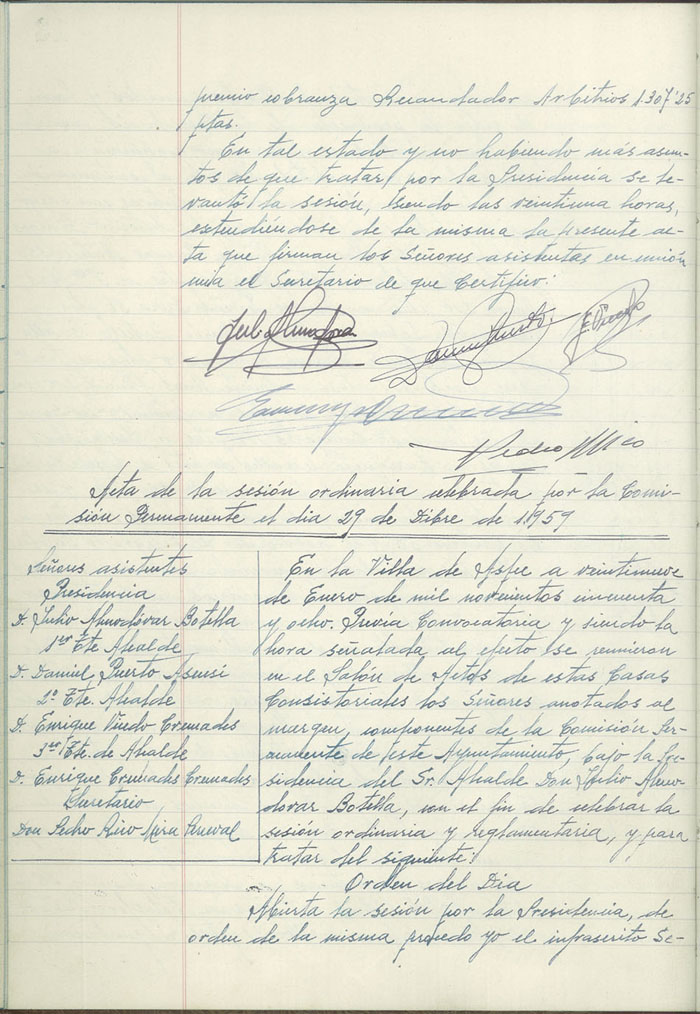 premio cobranza Recaudador Arbitrios 1.307'25
ptas.
En tal estado y no habiendo más asun-
tos de que tratar, por la Presidencia se le-
vantó la sesión, siendo las veintiuna horas,
estendiéndose de la misma la presente ac-
ta que firman los Señores asistentes en unión
mia el Secretario de que Certifico:
Pedro
Acta de la sesión ordinaria celebrada por la Comi-
sión Permanente el dia 29 de Dibre de 1.959
Señores asistentes
Presidencia
D. Julio Almodóvar Botella
1er Tte Alcalde
D. Daniel Puerto Asensi
2º Tte. Alcalde
D. Enrique Cremades
3er Tte. de Alcalde
D. Enrique Cremades Cremades
Secretario
Don Pedro
En la Villa de Aspe a veintinueve
de Enero de mil novecientos cincuenta
y ocho. Previa Convocatoria y siendo la
hora señalada al efecto se reunieron
en el Salón de Actos de estas Casas
Consistoriales los Señores anotados al
margen, componentes de la Comisión Per-
manente de este Ayuntamiento, bajo la Pre-
sidencia del Sr. Alcalde Don Julio Almo-
dóvar Botella, con el fin de celebrar la
sesión ordinaria y reglamentaria, y para
tratar del siguiente:
Orden del Dia
Abierta la sesión por la Presidencia, de
orden de la misma procedo yo el infrascrito Se-